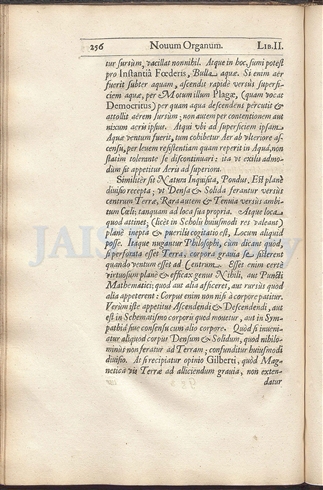 256 Nouum Organum. LIB.II.
tur sursùm, vacillat nonnihil. Atque in hoc, sumi potest
pro Instantiâ Fœderis, Bulla aquæ. Si enim aër
fuerit subter aquam, ascendit rapidè versùs superfi-
ciem aquæ, per Motum illum Plagæ, (quam vocat
Democritus) per quam aqua descendens percutit &
attollit aërem sursùm; non autem per contentionem aut
nixum aeris ipsius. Atqui vbi ad superficiem ipsam
Aquæ ventum fuerit, tum cohibetur Aer ab vlteriore as-
censu, per leuem resistentiam quam reperit in Aquâ, non
statim tolerante se discontinuari: ita vt exilis admo-
dùm sit appetitus Aeris ad superiora.
Similitèr sit Natura Inquisita, Pondus. Est planè
diuisio recepta; vt Densa & Solida ferantur versùs
centrum Terræ, Rara autem & Tenuia versùs ambi-
tum Cœli; tanquam ad loca sua propria. Atque loca
quod attinet, (licèt in Scholis huiusmodi res valeant)
planè inepta & puerilis cogitatio est, Locum aliquid
posse. Itaque nugantur Philosophi, cùm dicant quòd, si
perforata esset Terra, corpora grauia se sisterent
quandò ventum esset ad Centrum. Esset enim certè
virtuosum planè & efficax genus Nihili, aut Puncti
Mathematici; quod aut alia afficeret, aut rursùs quod
alia appeterent: Corpus enim non nisi à corpore patitur.
Verùm iste appetitus Ascendendi & Descendendi, aut
est in Schematismo corporis quod mouetur, aut in Sym-
pathiâ siue consensu cum alio corpore. Quòd si inueni-
atur aliquod corpus Densum & Solidum, quod nihilo-
minùs non feratur ad Terram; confunditur huiusmodi
diuisio. At si recipiatur opinio Gilberti, quòd Mag-
netica vis Terræ ad alliciendum grauia, non exten-
datur